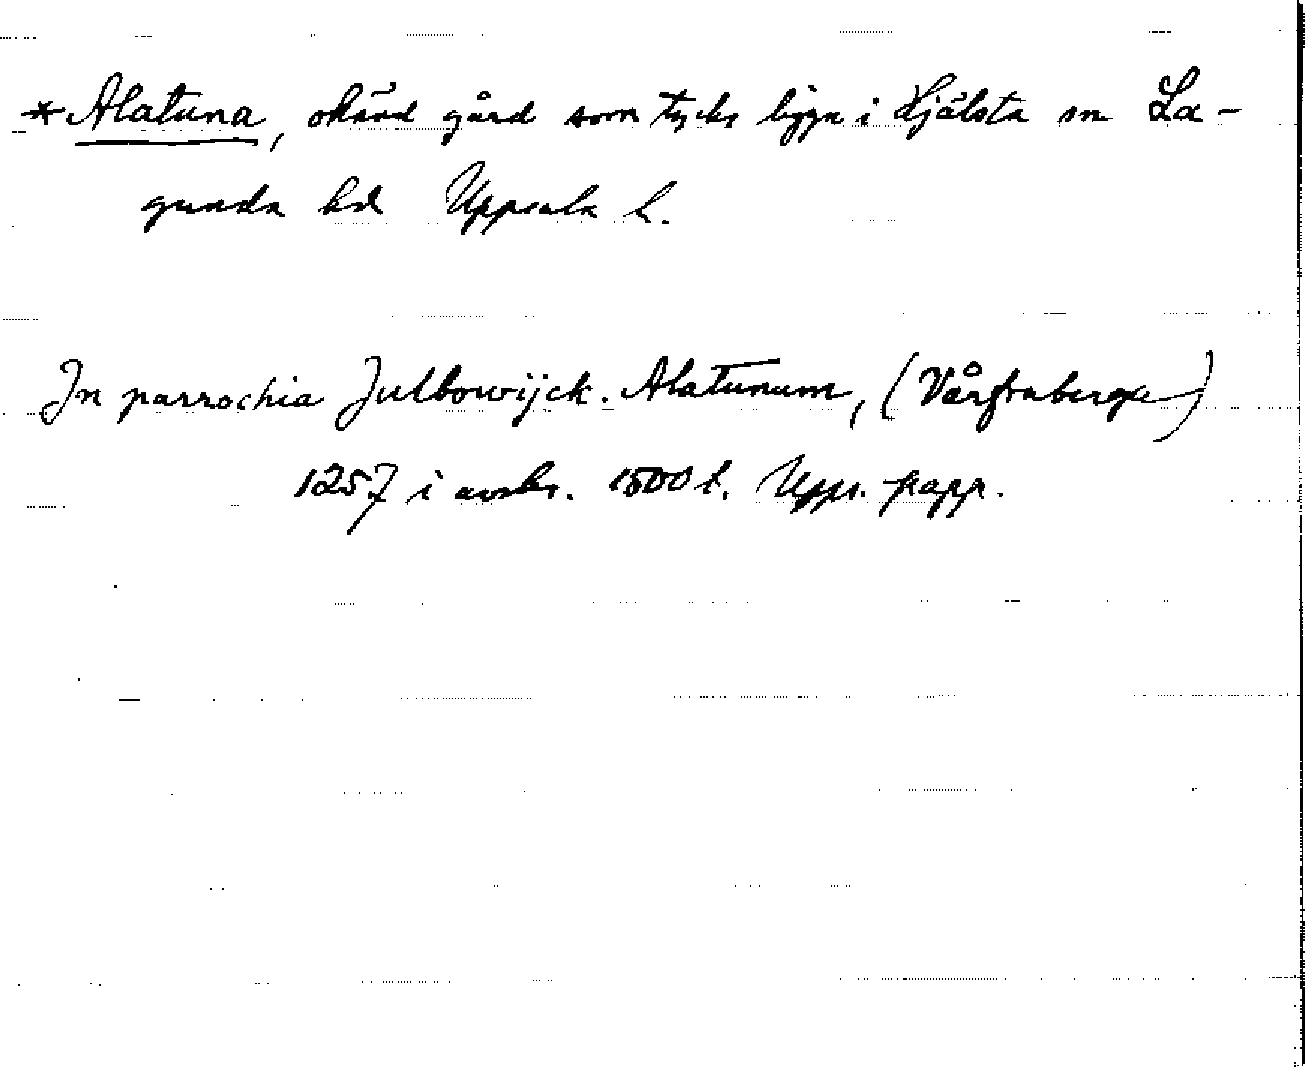 * Alatuna, okänd gård som tycks ligga i Hjälsta sn La-
gunda hd Uppsala l.
In parrochia Julbowijck. Alatunum, (Vårfruberga)
1257 i avskr. 1500 t. Upps. papp.